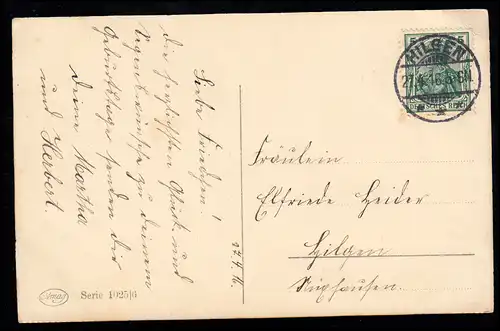 Liebe Friedchen!
die herzlichsten Glück und
Segenswünsche zu deinem
Geburtstage senden dir
deine Martha
und Herbert.
27.4.16.
Amag
Serie 1025/6
5 5
HILGEN
27.4.16.
DEUTSCHES REICH
Fräulein
Elfriede Heider
Hilgen